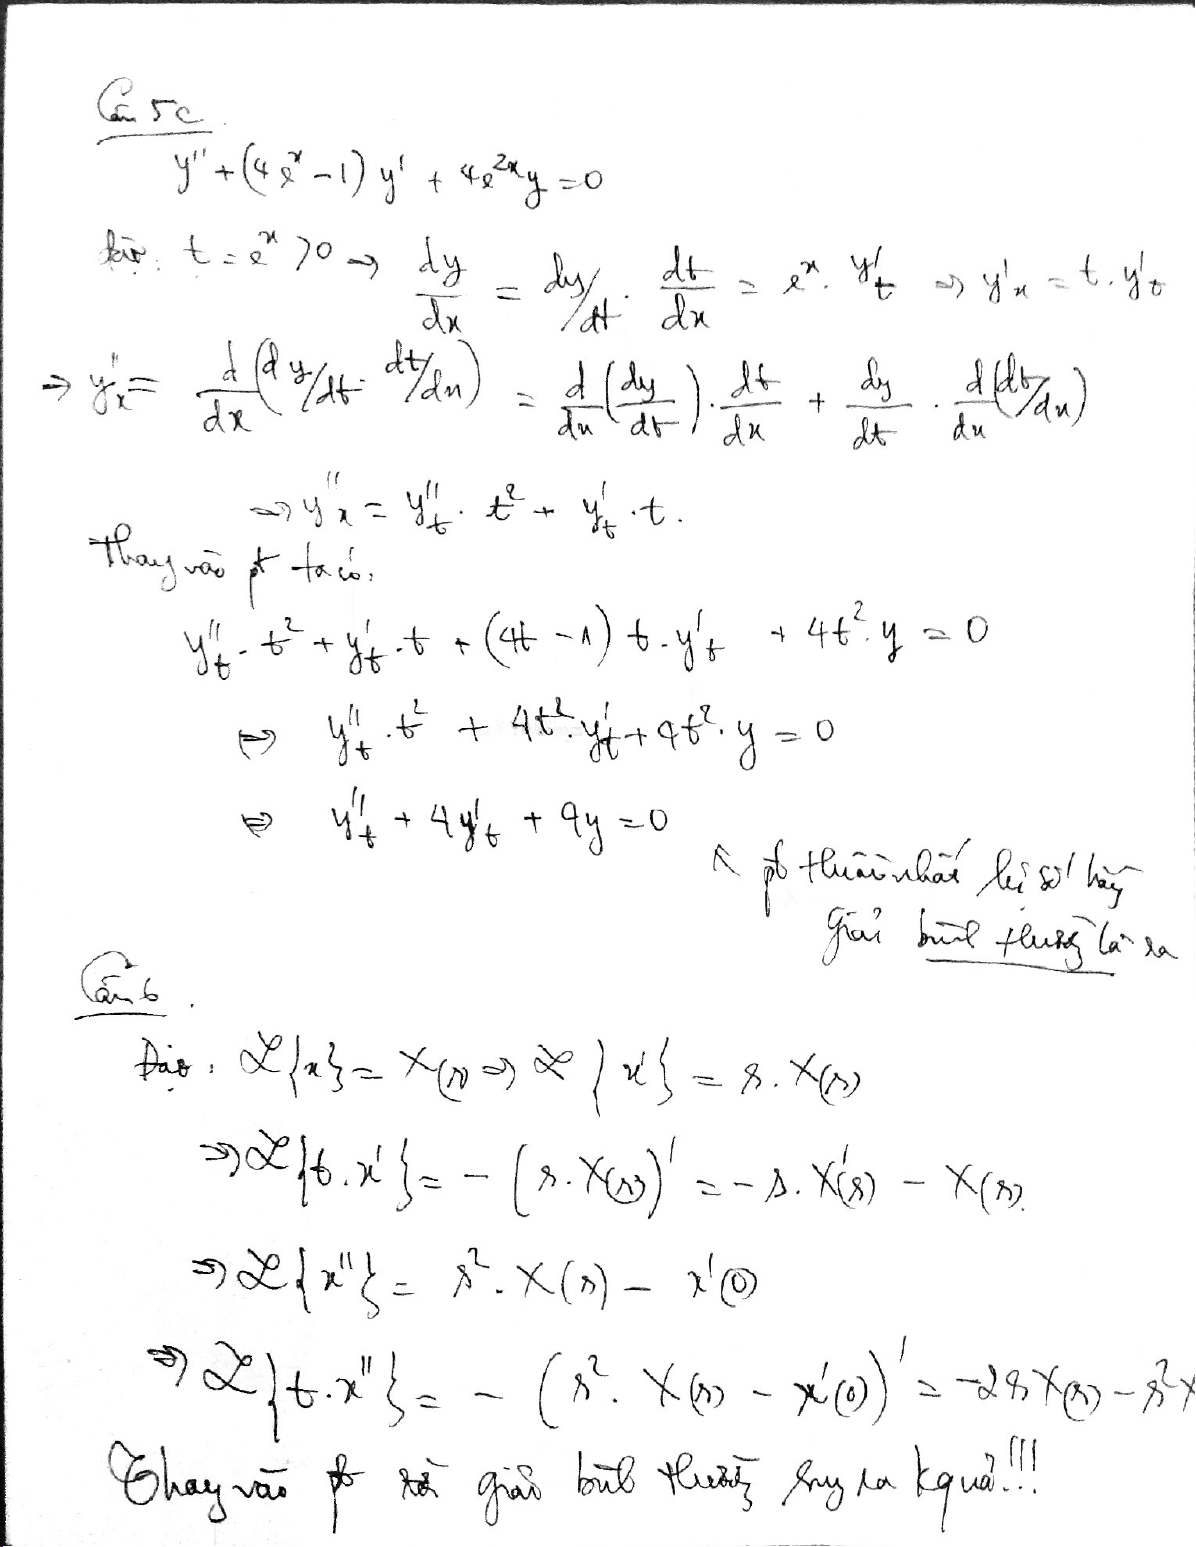 Câu 5c.
y'' + (4e^x - 1) y' + 4e^{2x} y = 0
Đặt: t = e^x > 0 → dy/dx = dy/dt · dt/dx = e^x · y'_t ⇒ y'_x = t · y'_t
⇒ y''_x = d/dx (dy/dt · dt/dx) = d/dx (dy/dt) · dt/dx + dy/dt · d/dx (dt/dx)
⇒ y''_x = y''_t · t^2 + y'_t · t.
Thay vào pt ta có:
y''_t · t^2 + y'_t · t + (4t - 1) t · y'_t + 4t^2 · y = 0
⇔ y''_t · t^2 + 4t^2 · y'_t + 4t^2 · y = 0
⇔ y''_t + 4y'_t + 4y = 0
↖ pt thuần nhất hệ số hằng
Giải bình thường là ra
Câu 6.
Đặt: ℒ{x} = X(s) ⇒ ℒ{x'} = s · X(s)
⇒ ℒ{t · x'} = - (s · X(s))' = - s · X'(s) - X(s)
⇒ ℒ{x''} = s^2 · X(s) - x'(0)
⇒ ℒ{t · x''} = - (s^2 · X(s) - x'(0))' = -2sX(s) - s^2 X
Thay vào pt rồi giải bình thường suy ra kquả!!!